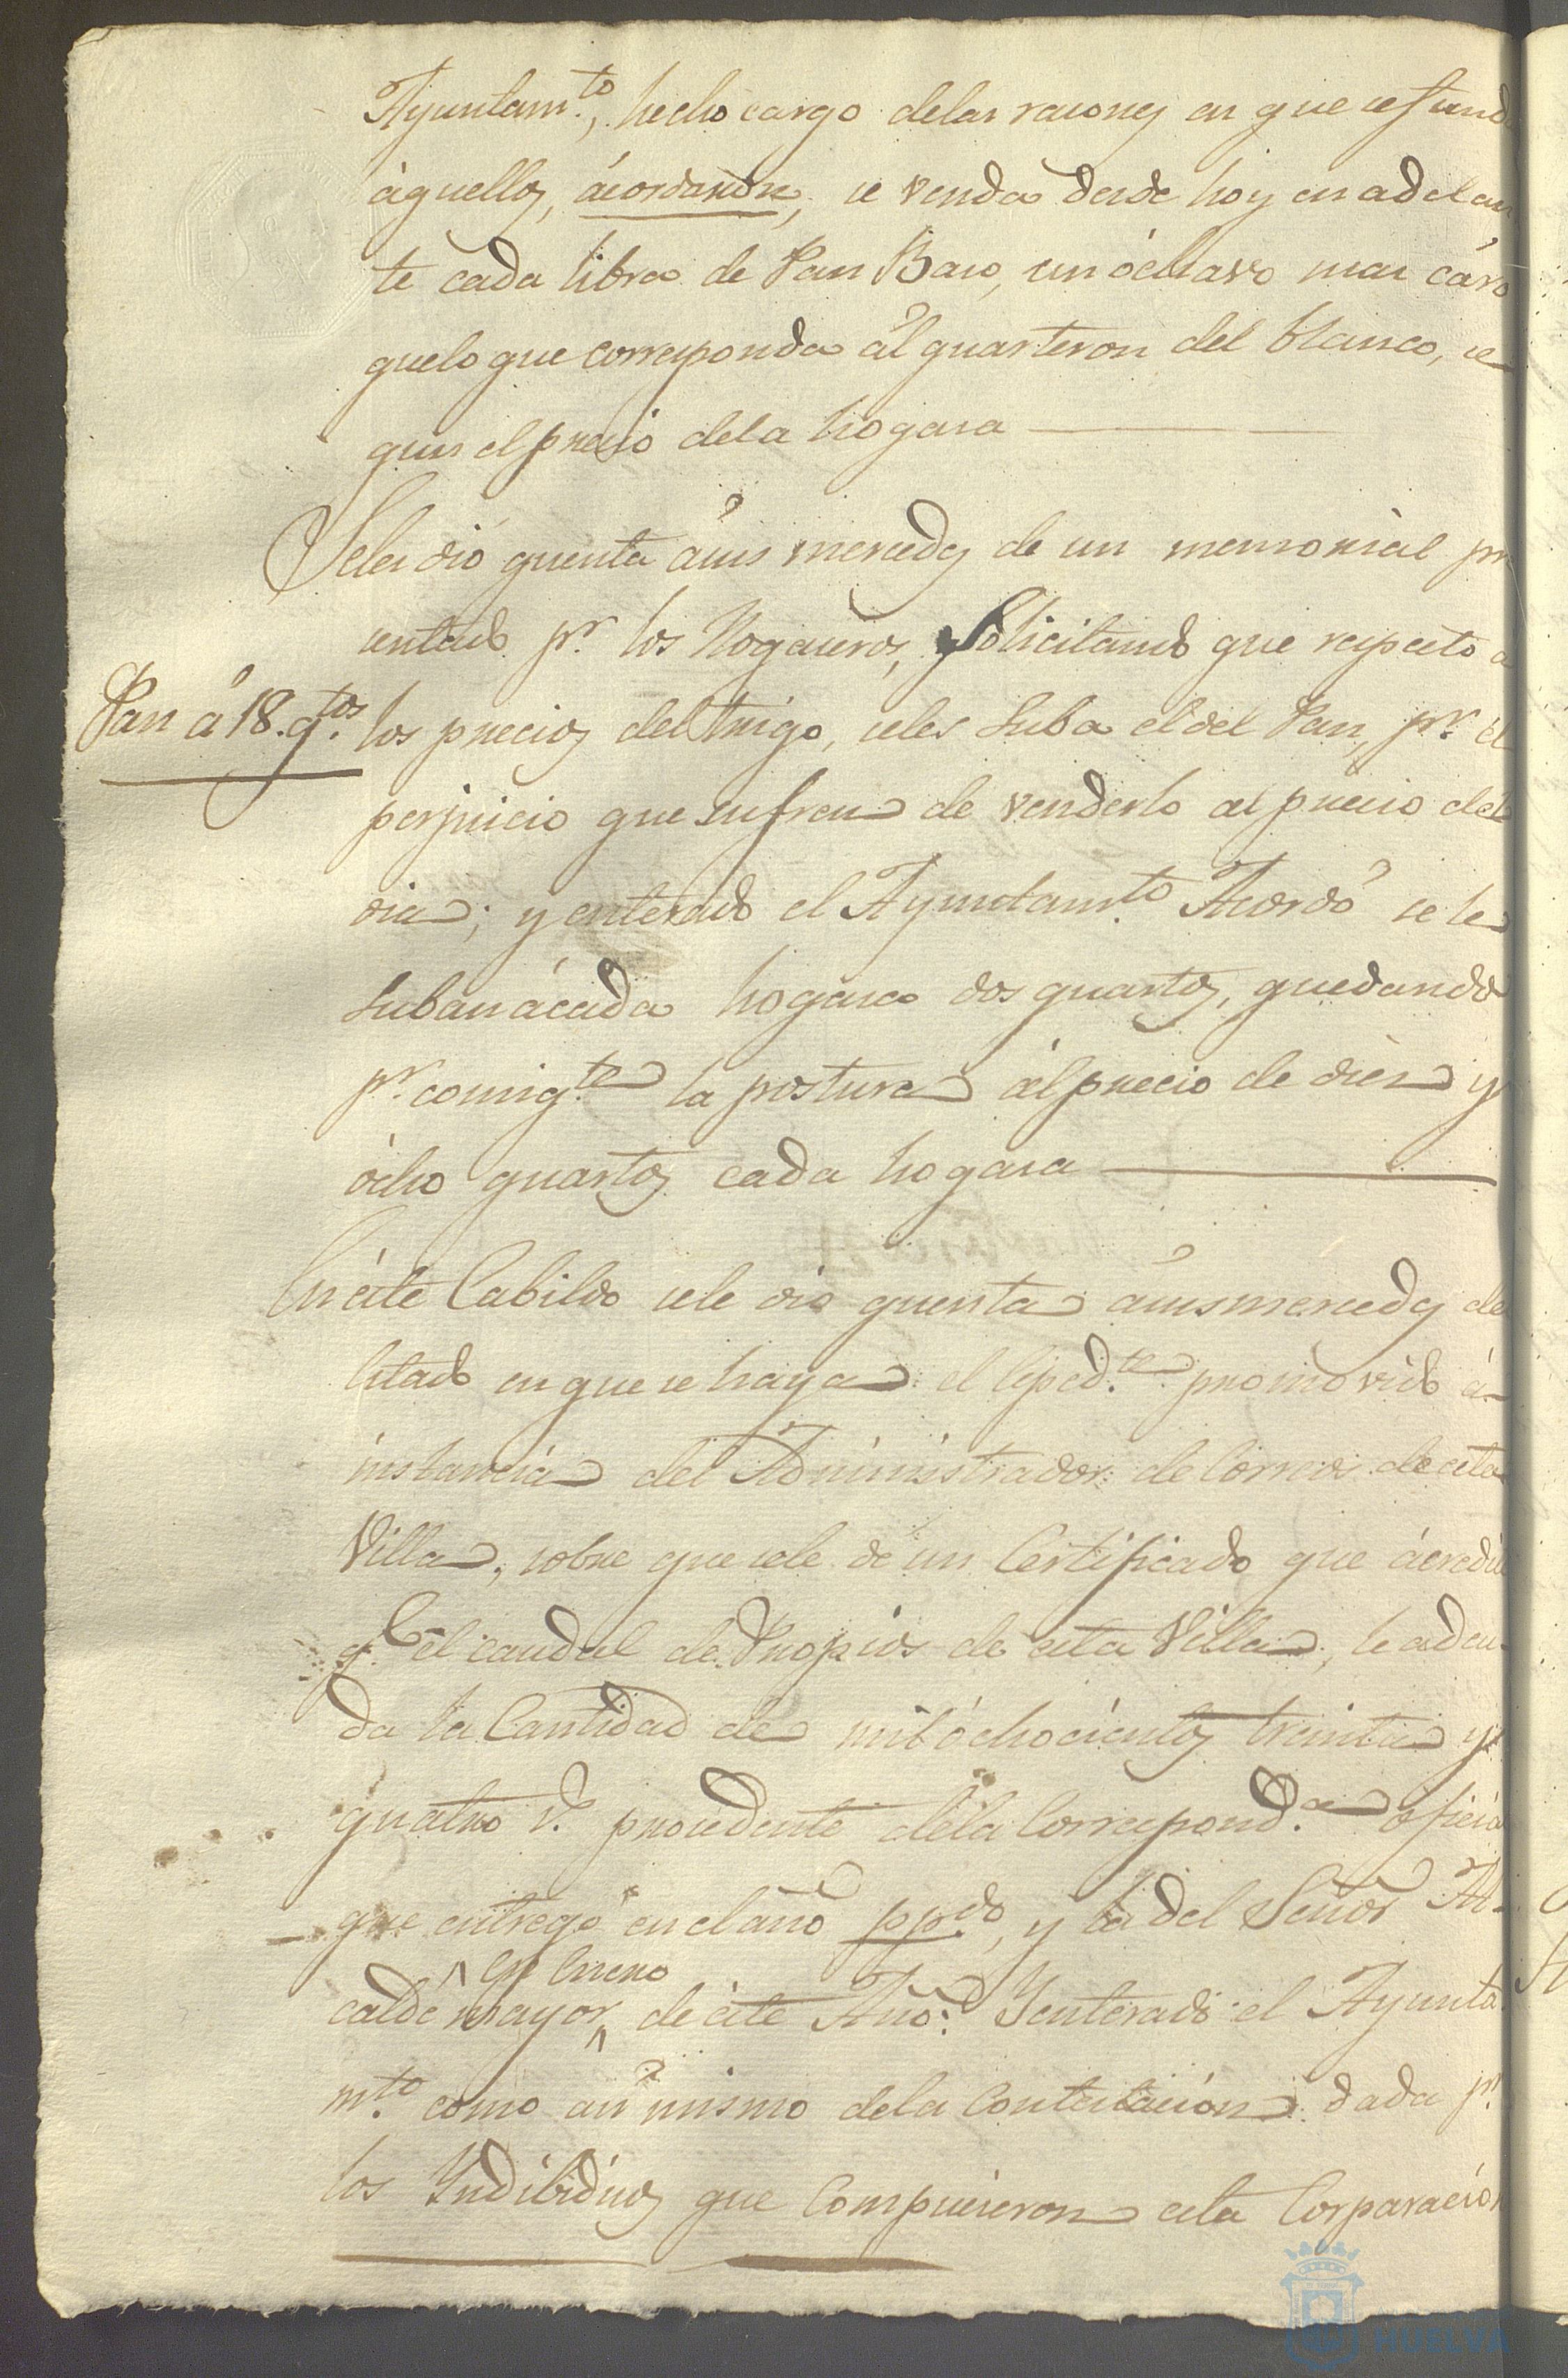 Ayuntam.to, hecho cargo delas rasones en que se fund
àquellos, ácordaron, se venda desde hoy en adelan
te cada libra de Pan Baso, un óchavo mas cáro
quelo que corresponda ál quarteron del blanco, se
gun el precio dela hogasa
Seles dió quenta ásus mercedes de un memorial pre
sentado p.r los Hogaseros, Solicitando que respecto a
Pan á 18. q.tos
los precios del trigo, seles suba el del Pan, p.r el
perjuicio que sufren de venderlo al precio del
dia; y enterado el Ayuntam.to Acordó se le
suban ácada hogasa dos quartos, quedando
p.r consig.te la postura álprecio de dies y
ócho quartos cada hogasa
En éste Cabildo sele dió quenta ásusmercedes del
estado en que se haya el Exped.te promovido á
instancia del Administrador de Correos de esta
Villa, sobre que sele dé un Certificado que ácredite
q.e él caudal de Propios de esta Villa, le adeu
da la Cantidad de mil óchocientos treinta y
quatro r.s procedente dela Correspond.a oficia
que entregó en el año pp.do, y la del Señor Al
en Enero
calde mayor de éste Año: Yenterado el Ayunta
m.to como asi mismo dela Contestacion dada p.r
los Yndibiduos que Compusieron esta Corporacion
HUELVA